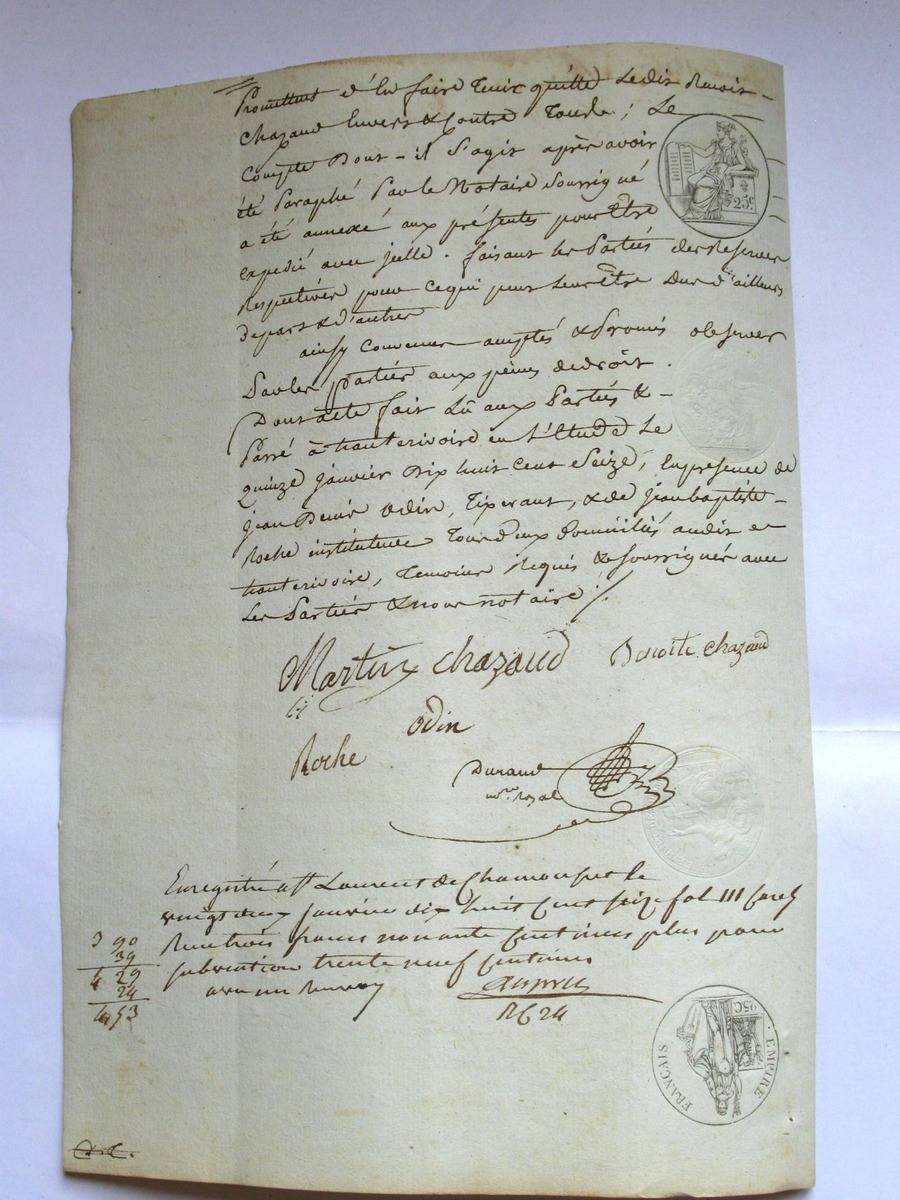 Promettant d'En faire Tenir quitte Ledit Benoit -
Chazaud Envers & Contre Toute ; Le
Compte Dont - il S'agit après avoir
été Paraphé Par le Notaire Soussigné
a été annexé aux présentes pour Être
expedié avec icelle . faisant les Partiés des Reserves
Respectives pour ce qui peut Leur être Du d'ailleurs
de part & d'autre
ainsy Convenu accepté & Promis observer
Par les partiés aux peines de droit .
Dont acte fait Lû aux Partiés & -
Passé à hauterivoire en L'Etude Le
quinze janvier Dix huit Cent Seize, En présence de
jean Denis Odin, Tixerant, & de jean baptiste -
Roche instituteur Tous deux domiciliés audit
hauterivoire, Temoins Requis & Soussignés avec
Les Partiés & nous notaire ./.
Martin Chazaud
Benoite Chazaud
Odin
Roche
Durand
n.re Royal
Enregistré à St Laurent de Chamousset le
vingt deux janvier dix huit cent seize fol 111
Reçu trois francs nonante centimes plus pour
subvention trente neuf centimes
avec un Renvoy
3 90
39
4 29
24
4 53
R 624
25c
25C
EMPIRE
FRANÇAIS